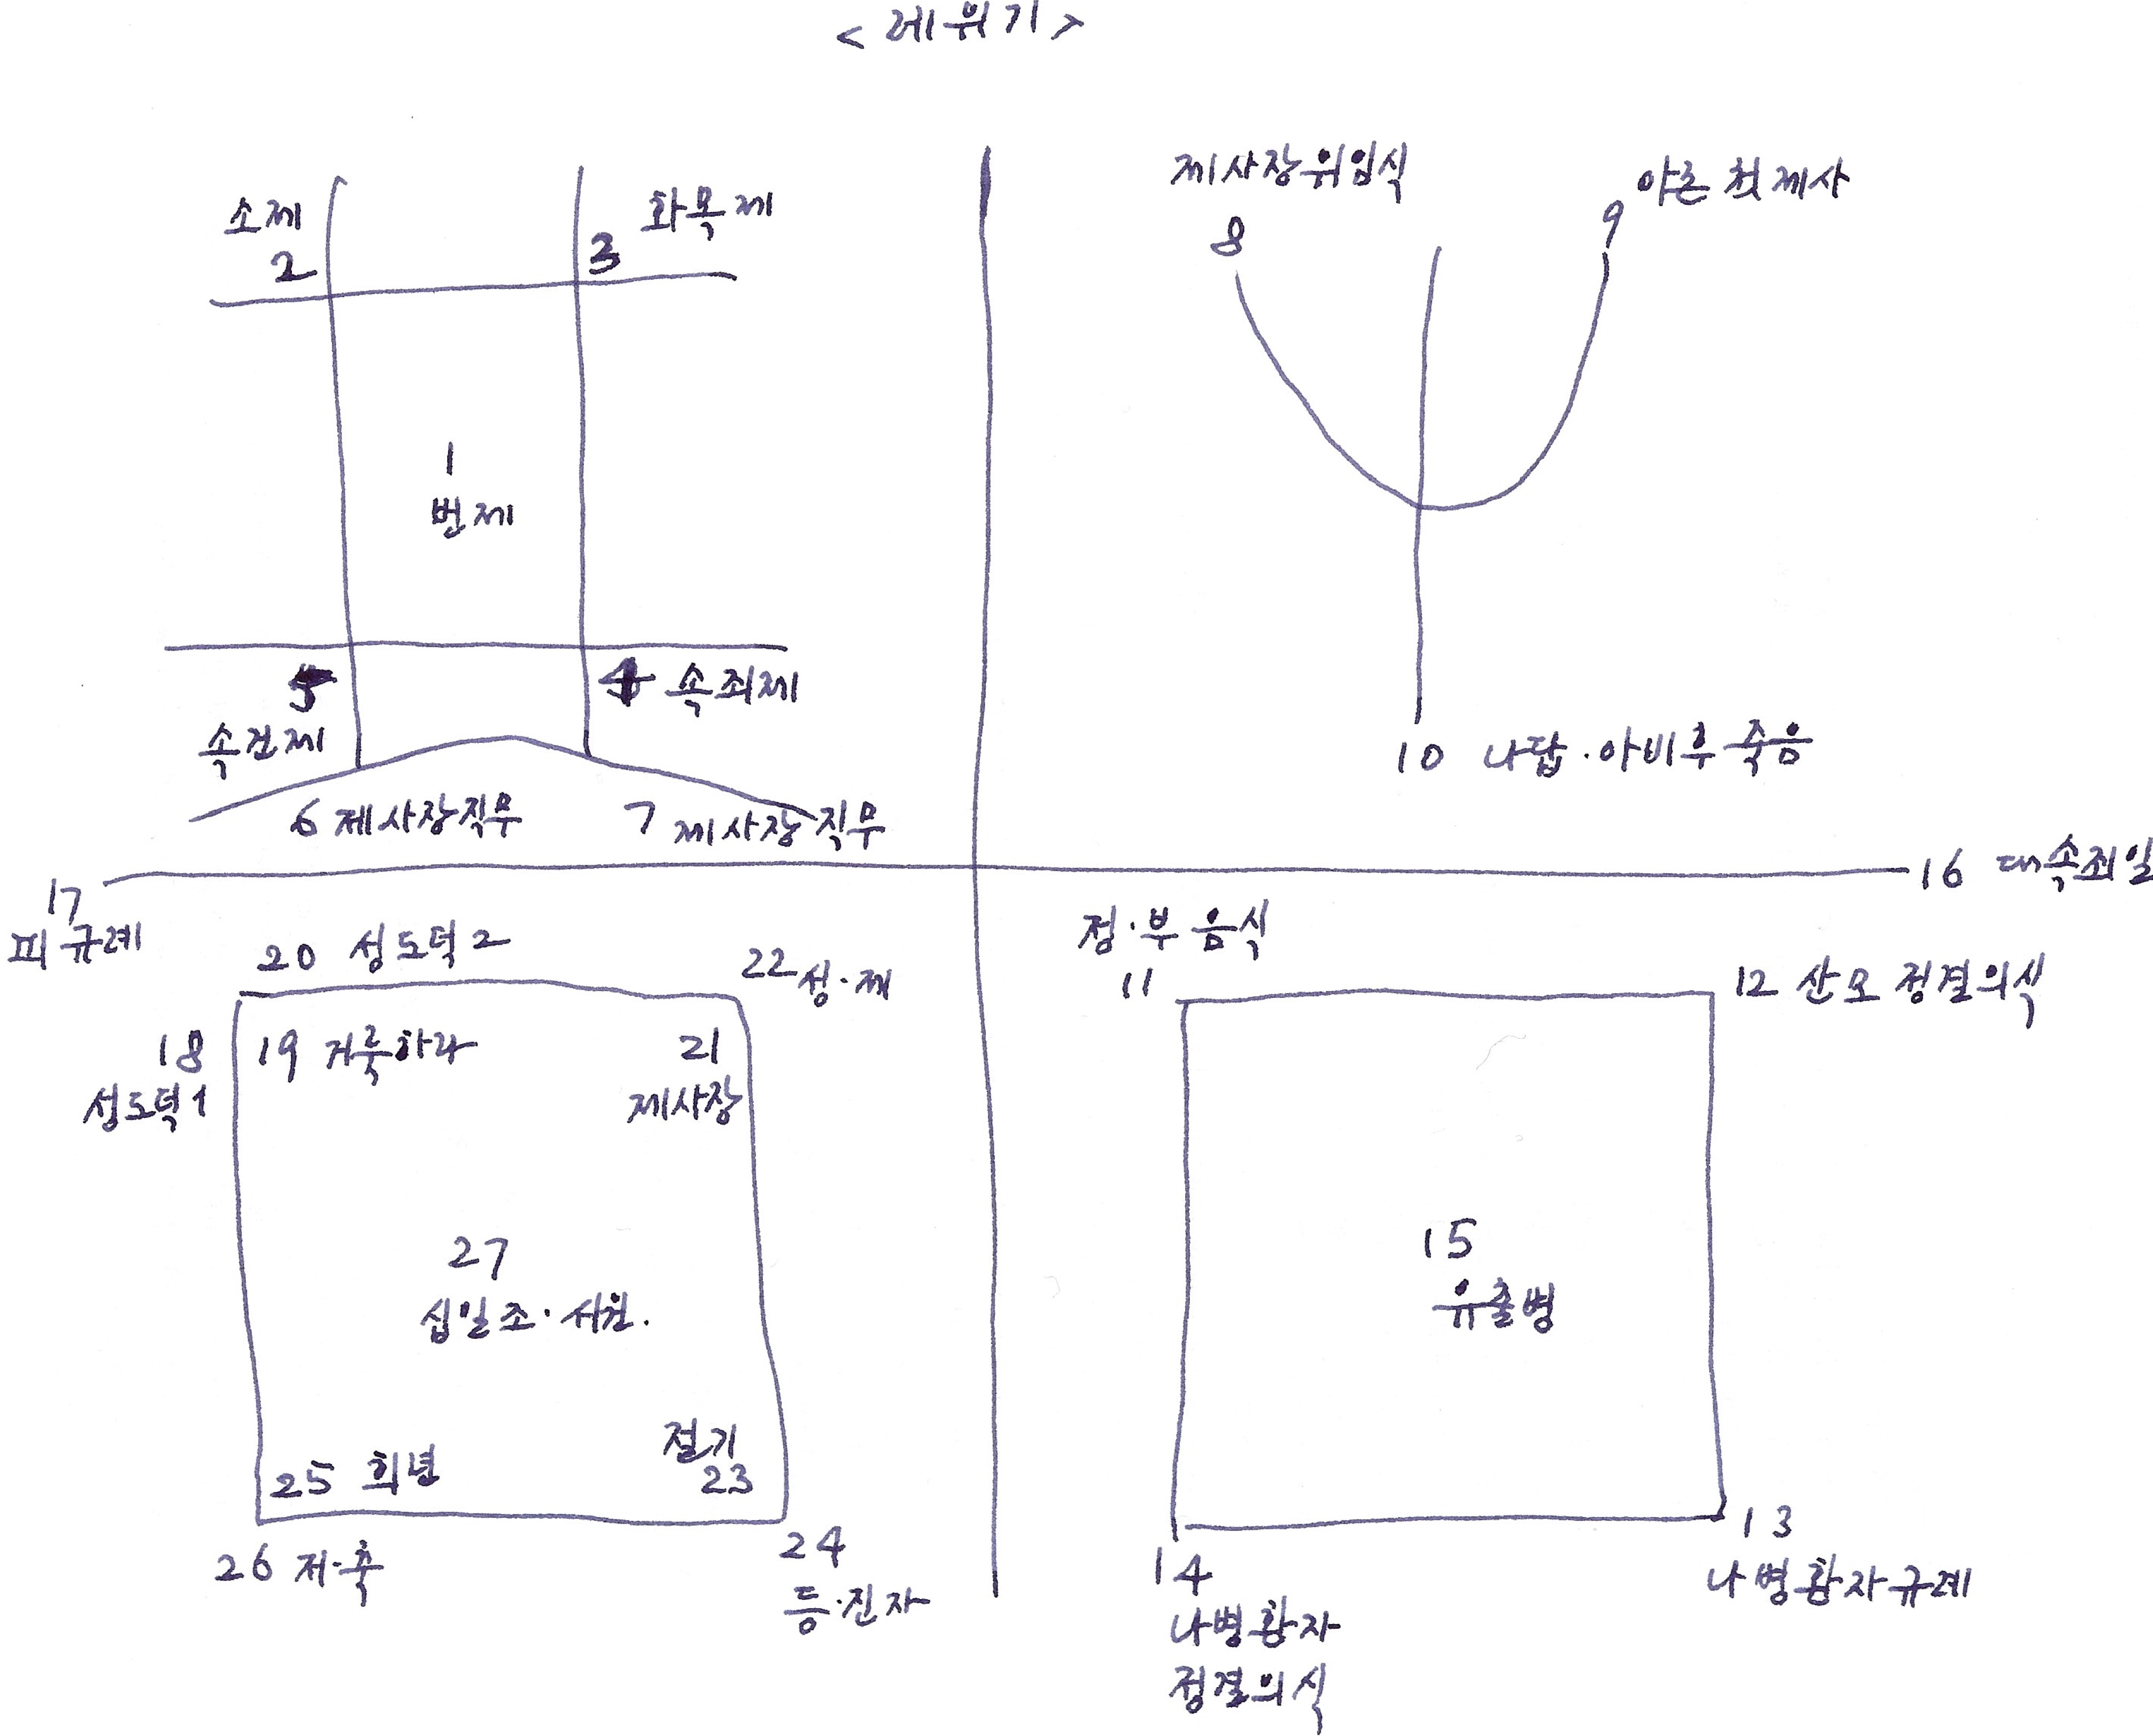 < 레위기 >
소제
2
3
화목제
1
번제
5
속건제
4 속죄제
6 제사장직무
7 제사장직무
제사장위임식
8
9 아론 첫제사
10 나답·아비후죽음
16 대속죄일
17
피규례
20 성도덕2
22 성·제
18
성도덕1
19 거룩하라
21
제사장
27
십일조·서원.
25 희년
절기
23
26 저·축
24
등·진자
정·부음식
11
12 산모 정결의식
15
유출병
13
나병환자규례
14
나병환자
정결의식